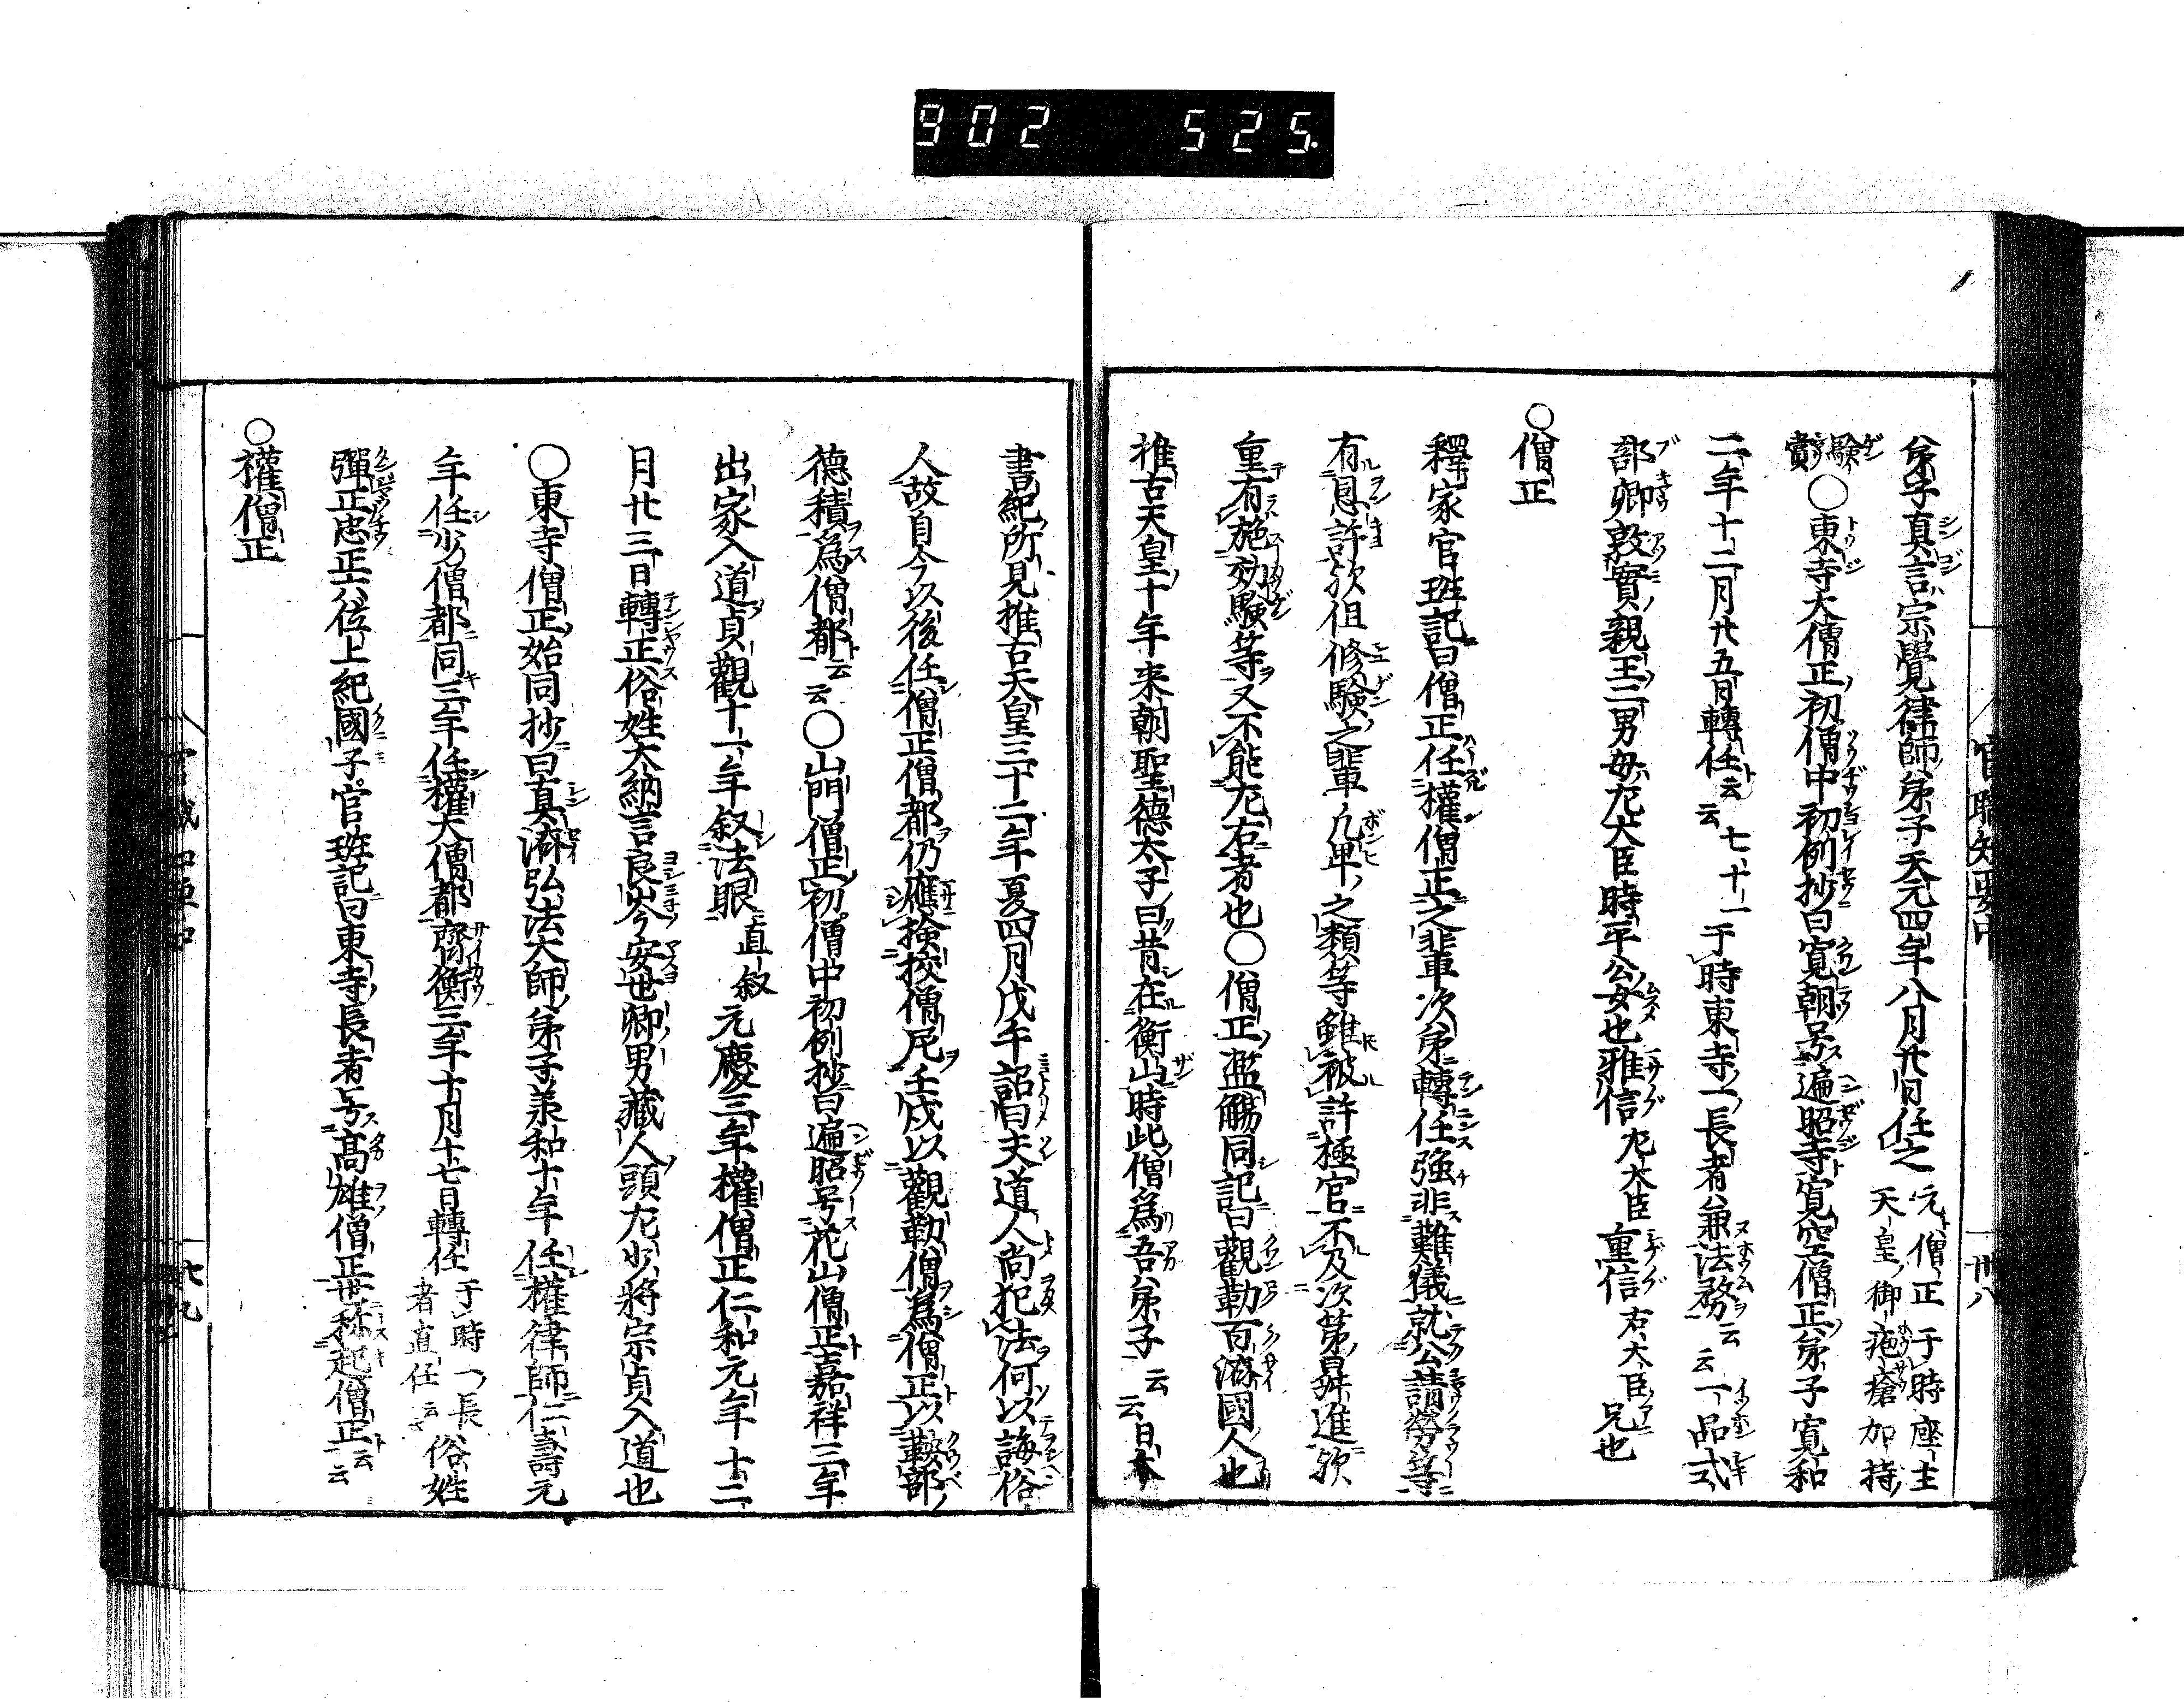 902 525.
弟子真言宗覺律師弟子天元四年八月廿日任之 元僧正于時座主天皇御疱瘡加持
賞 ○東寺大僧正初僧中初例抄曰寛朝号遍昭寺寛空僧正弟子寛和
二年十二月廿五日轉任云云 七十一于時東寺一長者兼法務云云一品式
部卿敦實親王二男母左大臣時平公女也雅信左大臣重信右大臣兄也
○僧正
釋家官班記曰僧正任權僧正之輩次第轉任強非難儀就公請勞等
有恩許歟但修驗之輩凡卑之類等雖被許極官不及次第昇進歟
重有施効驗等又不能左右者也○僧正濫觴同記曰觀勒百濟國人也
推古天皇十年来朝聖德太子曰昔在衡山時此僧爲吾弟子云云日本
書紀所見推古天皇三十二年夏四月戊午詔曰夫道人尚犯法何以誨俗
人故自今以後任僧正僧都仍應検挍僧尼壬戌以觀勒僧爲僧正以鞍部
德積爲僧都云云○山門僧正初僧中初例抄曰遍昭号花山僧正嘉祥三年
出家入道貞觀十一年叙法眼直叙元慶三年權僧正仁和元年十二
月廿三日轉正俗姓大納言良岑安世卿男藏人頭左少將宗貞入道也
○東寺僧正始同抄曰真濟弘法大師弟子羕和十年任權律師仁壽元
年任少僧都同三年任權大僧都齊衡三年十月十七日轉任于時一長者直任云々俗姓
彈正忠正六位上紀國子官班記曰東寺長者号髙雄僧正世称起僧正云云
○權僧正
官職知要中
卅八